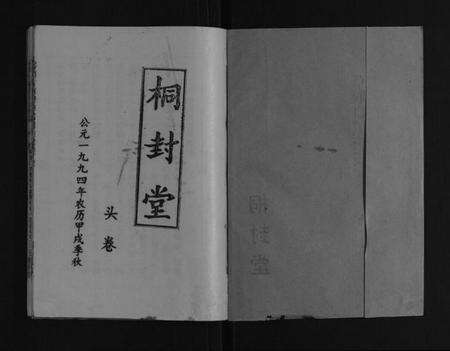 桐封堂
头卷
公元一九九四年农历甲戌季秋